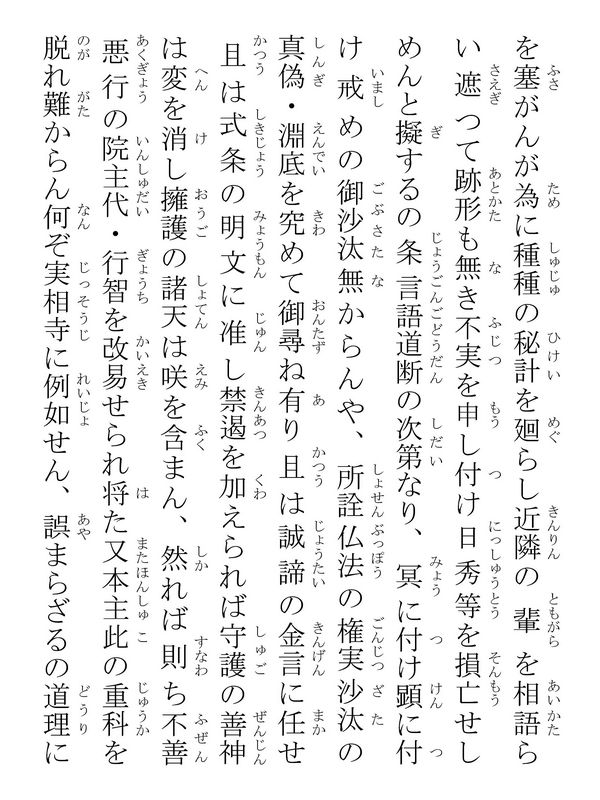 を塞がんが為に種種の秘計を廻らし近隣の輩を相語ら
い遮つて跡形も無き不実を申し付け日秀等を損亡せし
めんと擬するの条言語道断の次第なり、冥に付け顕に付
け戒めの御沙汰無からんや、所詮仏法の権実沙汰の
真偽・淵底を究めて御尋ね有り且は誠諦の金言に任せ
且は式条の明文に准し禁遏を加えられば守護の善神
は変を消し擁護の諸天は咲を含まん、然れば則ち不善
悪行の院主代・行智を改易せられ将た又本主此の重科を
脱れ難からん何ぞ実相寺に例如せん、誤まらざるの道理に